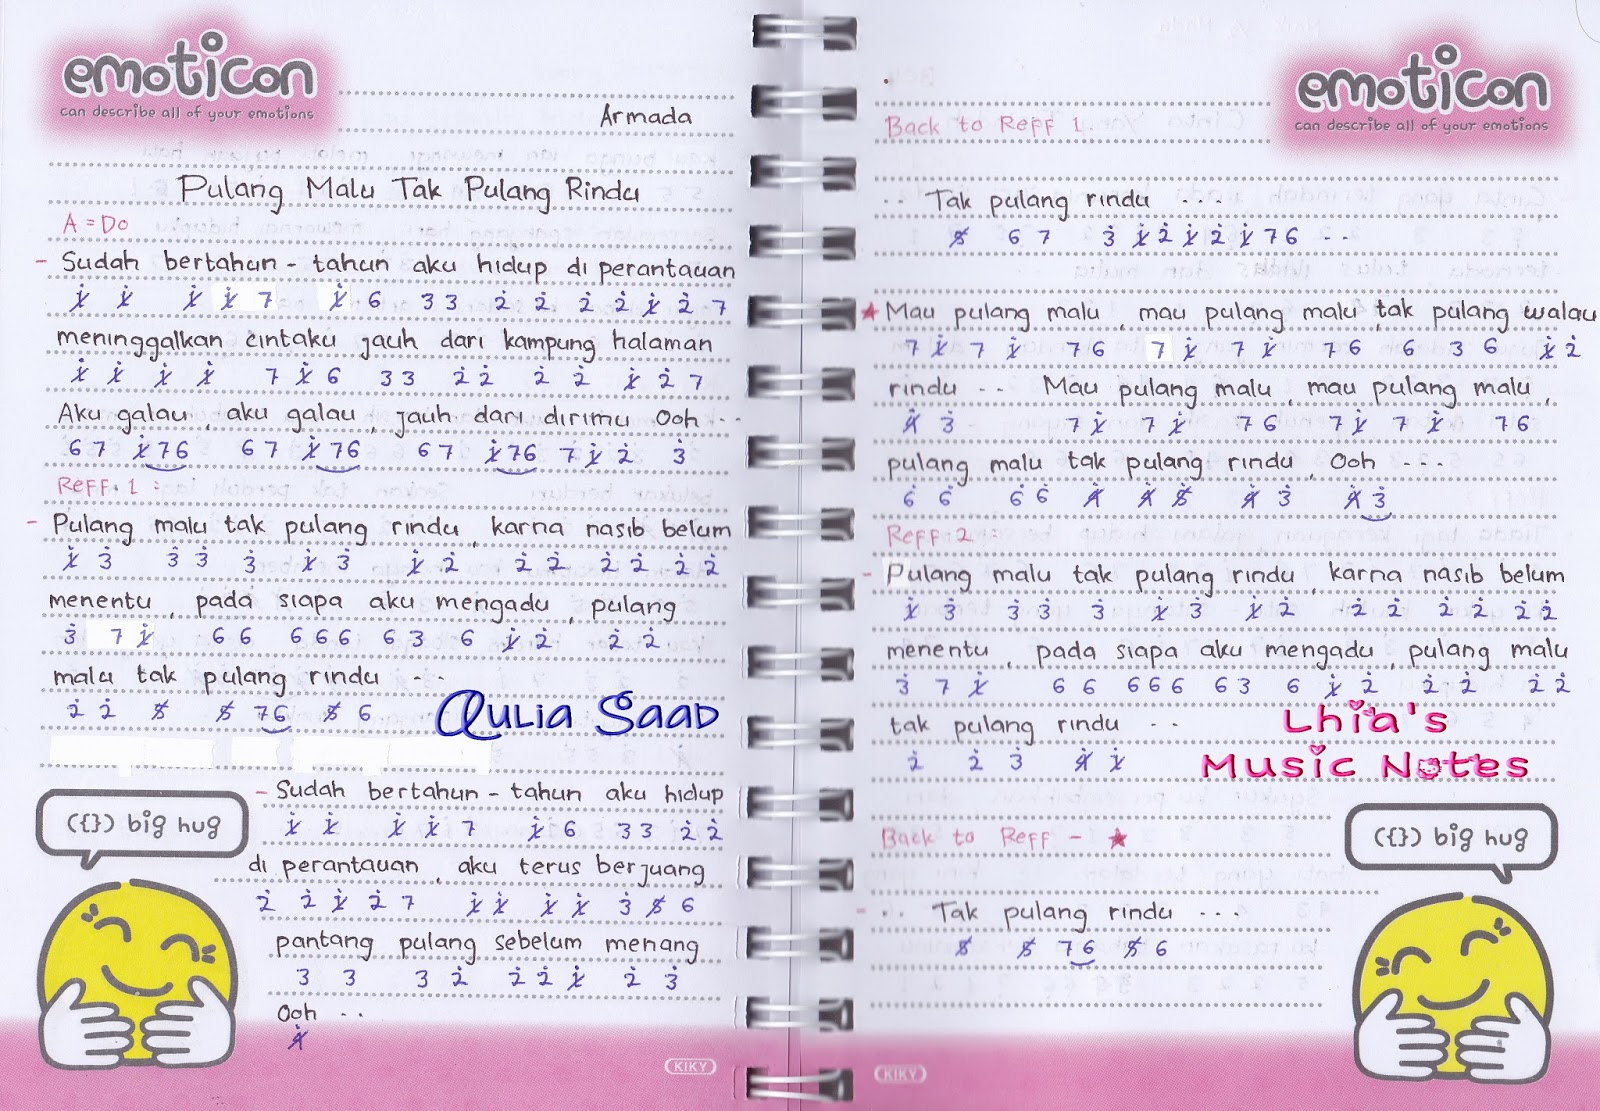 emoticon
can describe all of your emotions
Armada
Pulang Malu Tak Pulang Rindu
A = Do
- Sudah bertahun - tahun aku hidup di perantauan
1̸̇ 1̸̇ 1̸̇ 1̸̇ 7 1̸̇ 6 3 3 2̇ 2̇ 2̇ 2̇ 1̸̇ 2̇ 7
meninggalkan cintaku jauh dari kampung halaman
1̸̇ 1̸̇ 1̸̇ 1̸̇ 7 1̸̇ 6 3 3 2̇ 2̇ 2̇ 2̇ 1̸̇ 2̇ 7
Aku galau, aku galau, jauh dari dirimu Ooh ...
6 7 1̸̇ 7 6 6 7 1̸̇ 7 6 6 7 1̸̇ 7 6 7 1̸̇ 2̇ 3̇
Reff. 1 :
- Pulang malu tak pulang rindu, karna nasib belum
1̸̇ 3̇ 3̇ 3̇ 3̇ 1̸̇ 3̇ 1̸̇ 2̇ 2̇ 2̇ 2̇ 2̇ 2̇ 2̇
menentu, pada siapa aku mengadu, pulang
3̇ 7 1̸̇ 6 6 6 6 6 6 3 6 1̸̇ 2̇ 2̇ 2̇
malu tak pulang rindu ...
2̇ 2̇ 5̸ 5̸ 7 6 5̸ 6
Aulia Saad
- Sudah bertahun - tahun aku hidup
1̸̇ 1̸̇ 1̸̇ 1̸̇ 7 1̸̇ 6 3 3 2̇ 2̇
di perantauan, aku terus berjuang
2̇ 2̇ 1̸̇ 2̇ 7 1̸̇ 1̸̇ 1̸̇ 1̸̇ 3̇ 5̸ 6
pantang pulang sebelum menang
3 3 3 2̇ 2̇ 2̇ 1̸̇ 2̇ 3̇
Ooh ..
4̸̇
({}) big hug
KIKY
emoticon
can describe all of your emotions
Back to Reff 1
.. Tak pulang rindu ....
5̸ 6 7 3̇ 1̸̇ 2̇ 1̸̇ 2̇ 1̸̇ 7 6 ..
★ Mau pulang malu, mau pulang malu, tak pulang walau
7 1̸̇ 7 1̸̇ 7 6 7 1̸̇ 7 1̸̇ 7 6 6 3 6 1̸̇ 2̇
rindu .. Mau pulang malu, mau pulang malu,
4̸̇ 3̇ 7 1̸̇ 7 1̸̇ 7 6 7 1̸̇ 7 1̸̇ 7 6
pulang malu tak pulang rindu, Ooh ....
6̇ 6̇ 6̇ 6̇ 4̸̇ 4̸̇ 5̸̇ 4̸̇ 3̇ 4̸̇ 3̇
Reff 2
- Pulang malu tak pulang rindu, karna nasib belum
1̸̇ 3̇ 3̇ 3̇ 3̇ 1̸̇ 3̇ 1̸̇ 2̇ 2̇ 2̇ 2̇ 2̇ 2̇ 2̇
menentu, pada siapa aku mengadu, pulang malu
3̇ 7 1̸̇ 6 6 6 6 6 6 3 6 1̸̇ 2̇ 2̇ 2̇ 2̇ 2̇
tak pulang rindu ..
2̇ 2̇ 3̇ 4̸̇ 1̸̇
Lhia's
Music Notes
Back to Reff - ★
- .. Tak pulang rindu ...
5̸ 5̸ 7 6 5̸ 6
({}) big hug
KIKY